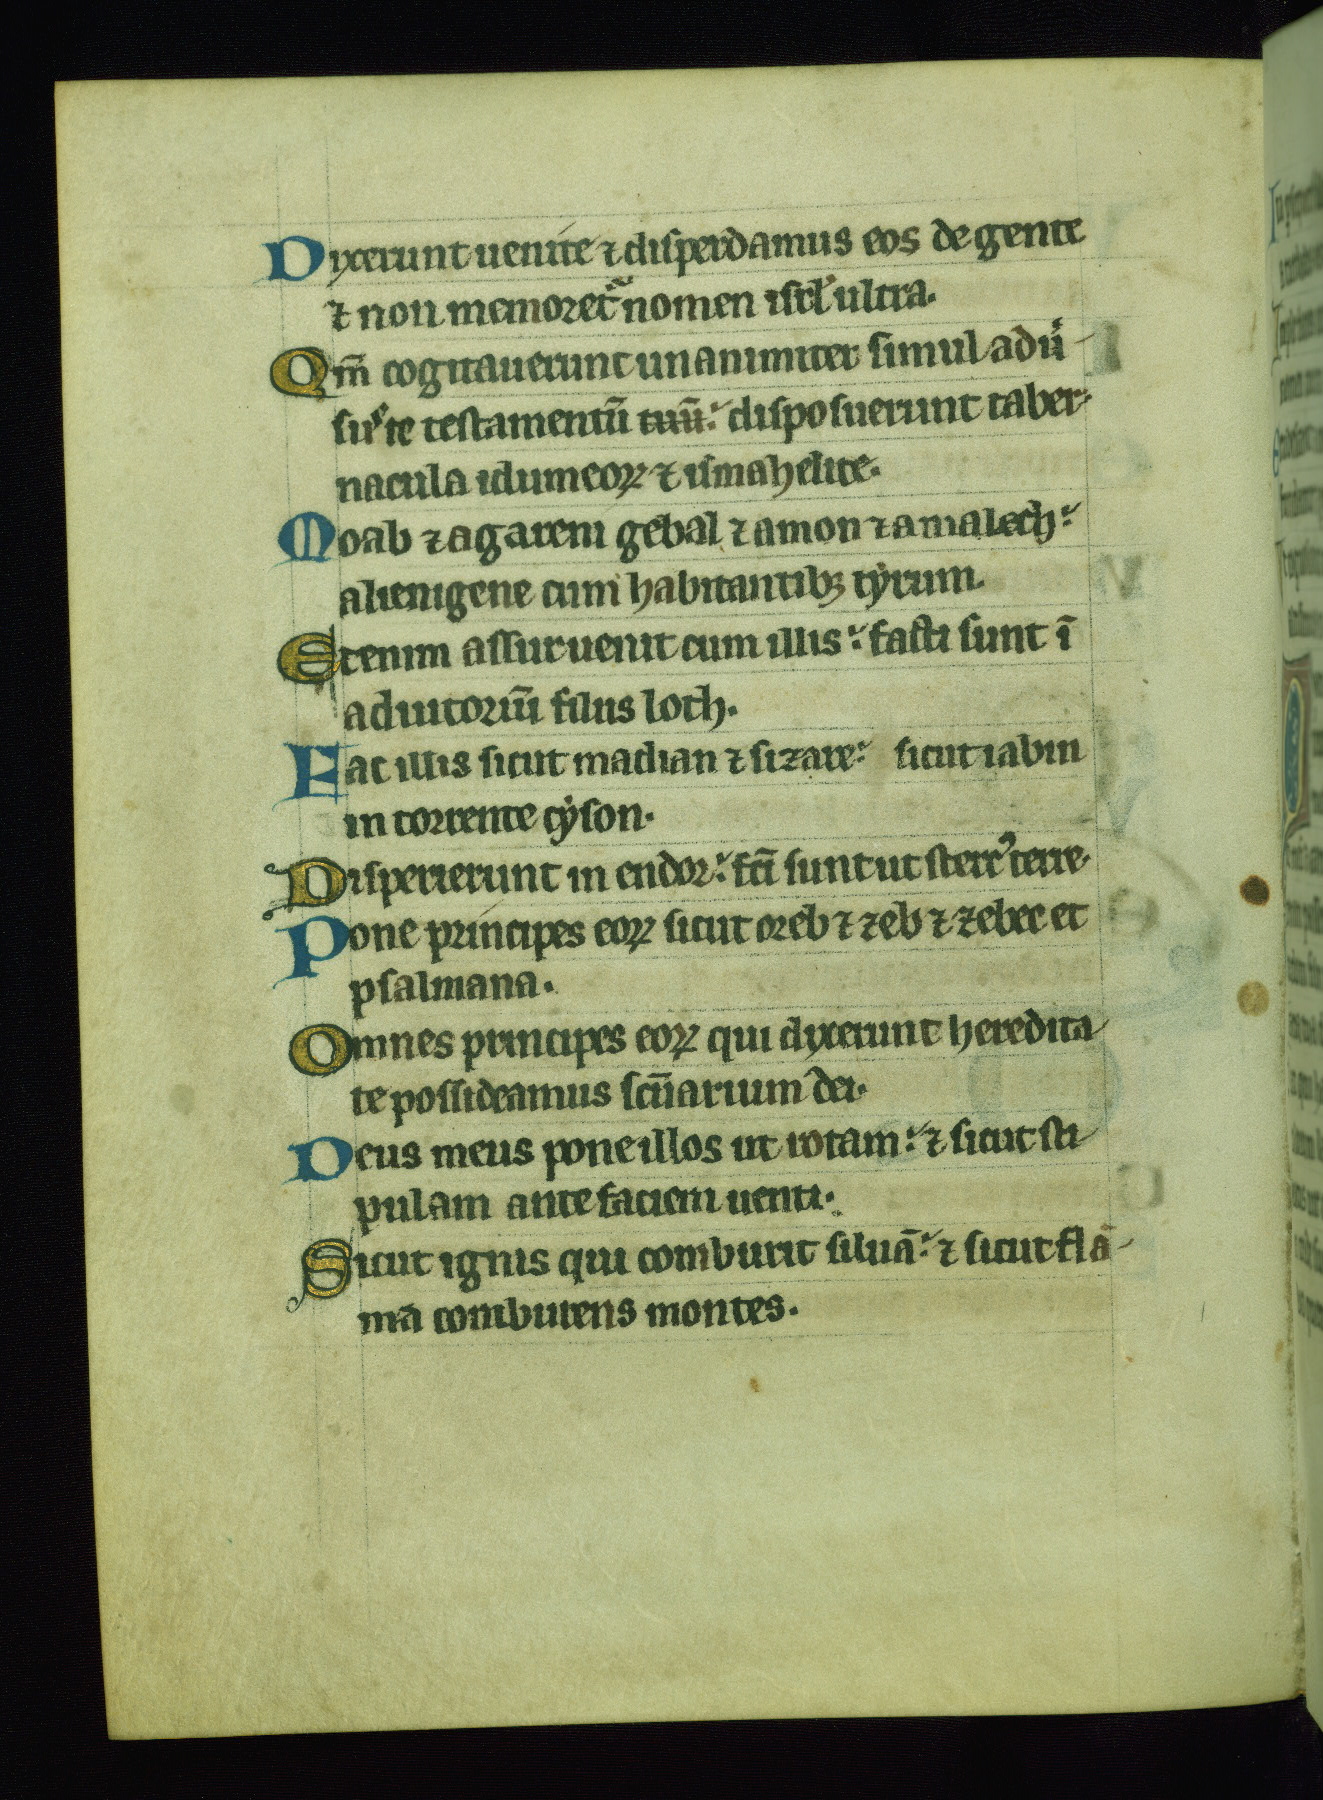 Dyxerunt uenite ⁊ disperdamus eos de gente
⁊ non memoret᷑ nomen isrl̓ ultra.
Qm̄ cogitauerunt unanimiter simul adū
sū te testamentū tuū: disposuerunt taber
nacula idumeoꝝ ⁊ ismahelite.
Moab ⁊ agareni gebal ⁊ amon ⁊ amalech:
alienigene cum habitantibꝫ tẏrum.
Etenim assur uenit cum illis: facti sunt ī
adiutoriū filiis loth.
Fac illis sicut madian ⁊ sizare: sicut iabin
in torrente cẏson.
Disperierunt in endor: fc̄i sunt ut sterc᾿ terre.
Pone principes eoꝝ sicut oreb ⁊ zeb ⁊ zebee et
psalmana.
Omnes principes eoꝝ qui dyxerunt heredita
te possideamus sc̄uarium dei.
Deus meus pone illos ut rotam: ⁊ sicut sti
pulam ante faciem uenti.
Sicut ignis qui comburit siluā: ⁊ sicut flā
ma comburens montes.